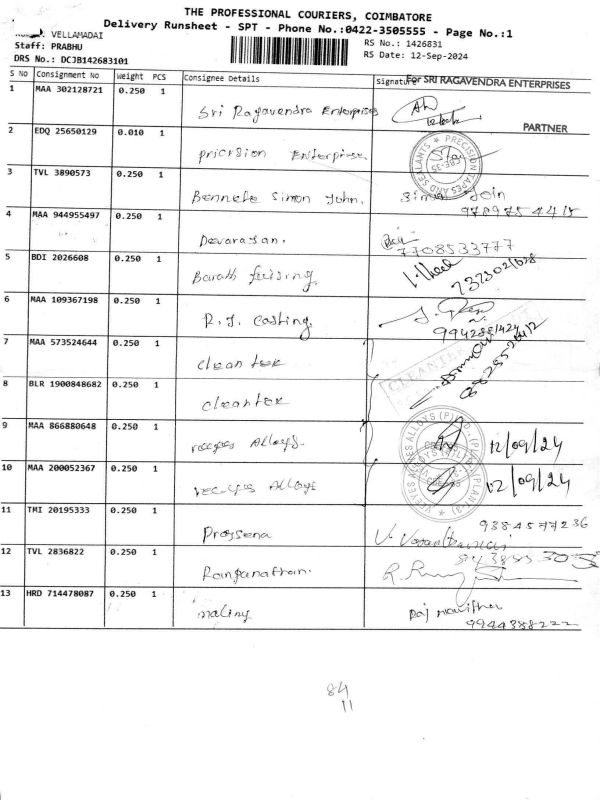 THE PROFESSIONAL COURIERS, COIMBATORE
Delivery Runsheet - SPT - Phone No.:0422-3505555 - Page No.:1
VELLAMADAI
Staff: PRABHU
DRS No.: DCJB142683101
RS No.: 1426831
RS Date: 12-Sep-2024
S No Consignment No Weight PCS Consignee Details Signature
For SRI RAGAVENDRA ENTERPRISES
1 MAA 302128721 0.250 1 Sri Ragavendra Enterprises
PARTNER
2 EDQ 25650129 0.010 1 pricrsion Enterprise
PRECISION TAPES AND SEALANTS * CBE-35
3 TVL 3890573 0.250 1 Bennete Simon John. Simon
4 MAA 944955497 0.250 1 Devarajan.
7708533777
5 BDI 2026608 0.250 1 Barath
6 MAA 109367198 0.250 1 R.J. Casting.
7 MAA 573524644 0.250 1 cleantek
8 BLR 1900848682 0.250 1 cleantek
9 MAA 866880648 0.250 1 Alloys. 12/09/24
10 MAA 200052367 0.250 1 Alloys 12/09/24
11 TMI 20195333 0.250 1 Prassena
9384577236
12 TVL 2836822 0.250 1 Ranganathan.
13 HRD 714478087 0.250 1 maliny Raj
9944388222
84
11